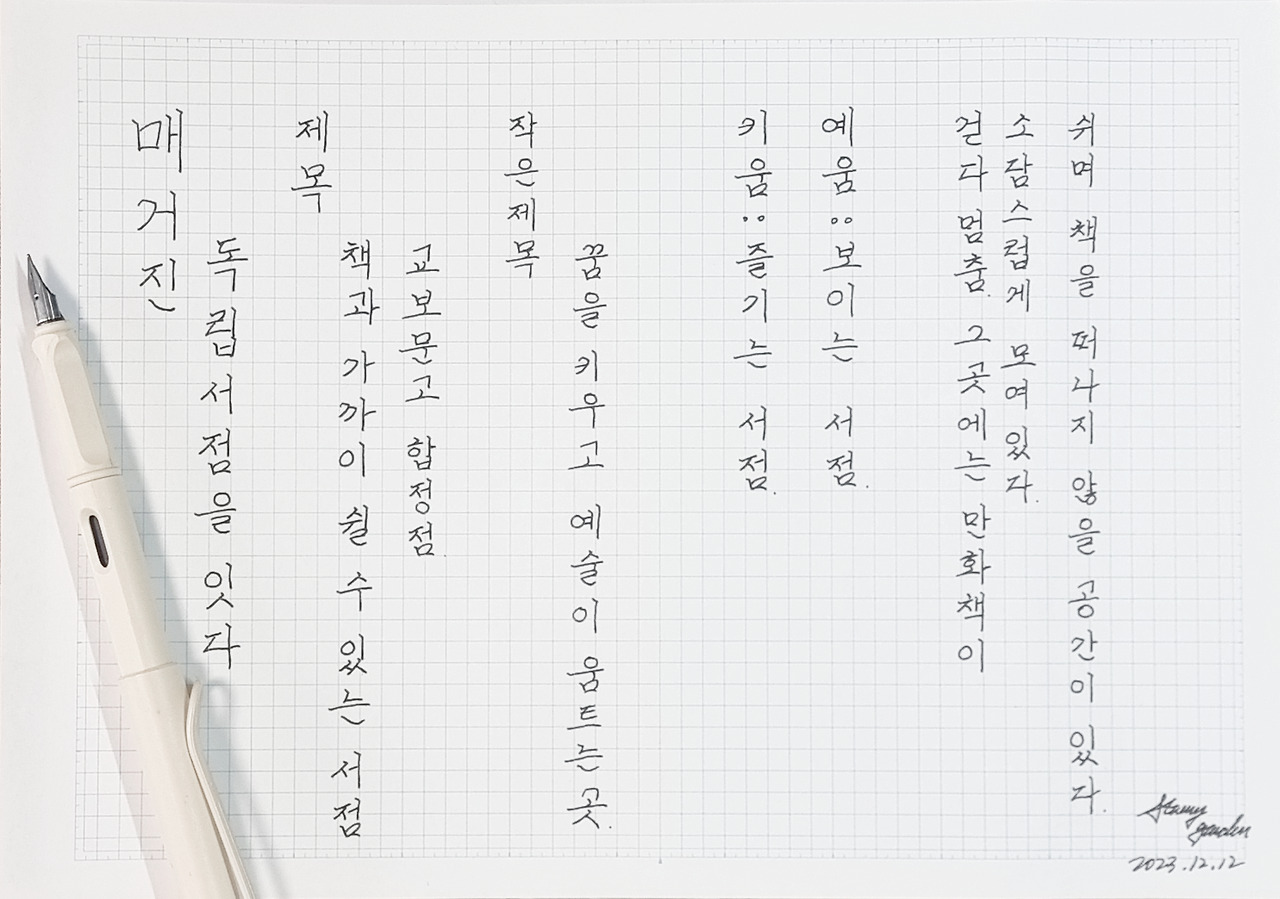 매거진
독립서점을 잇다
제목
책과 가까이 쉴 수 있는 서점
교보문고 합정점.
작은제목
꿈을 키우고 예술이 움트는 곳.
키움:즐기는 서점.
예움:보이는 서점.
걷다 멈춤. 그곳에는 만화책이
소담스럽게 모여있다.
쉬며 책을 떠나지 않을 공간이 있다.
Starry
garden
2023.12.12